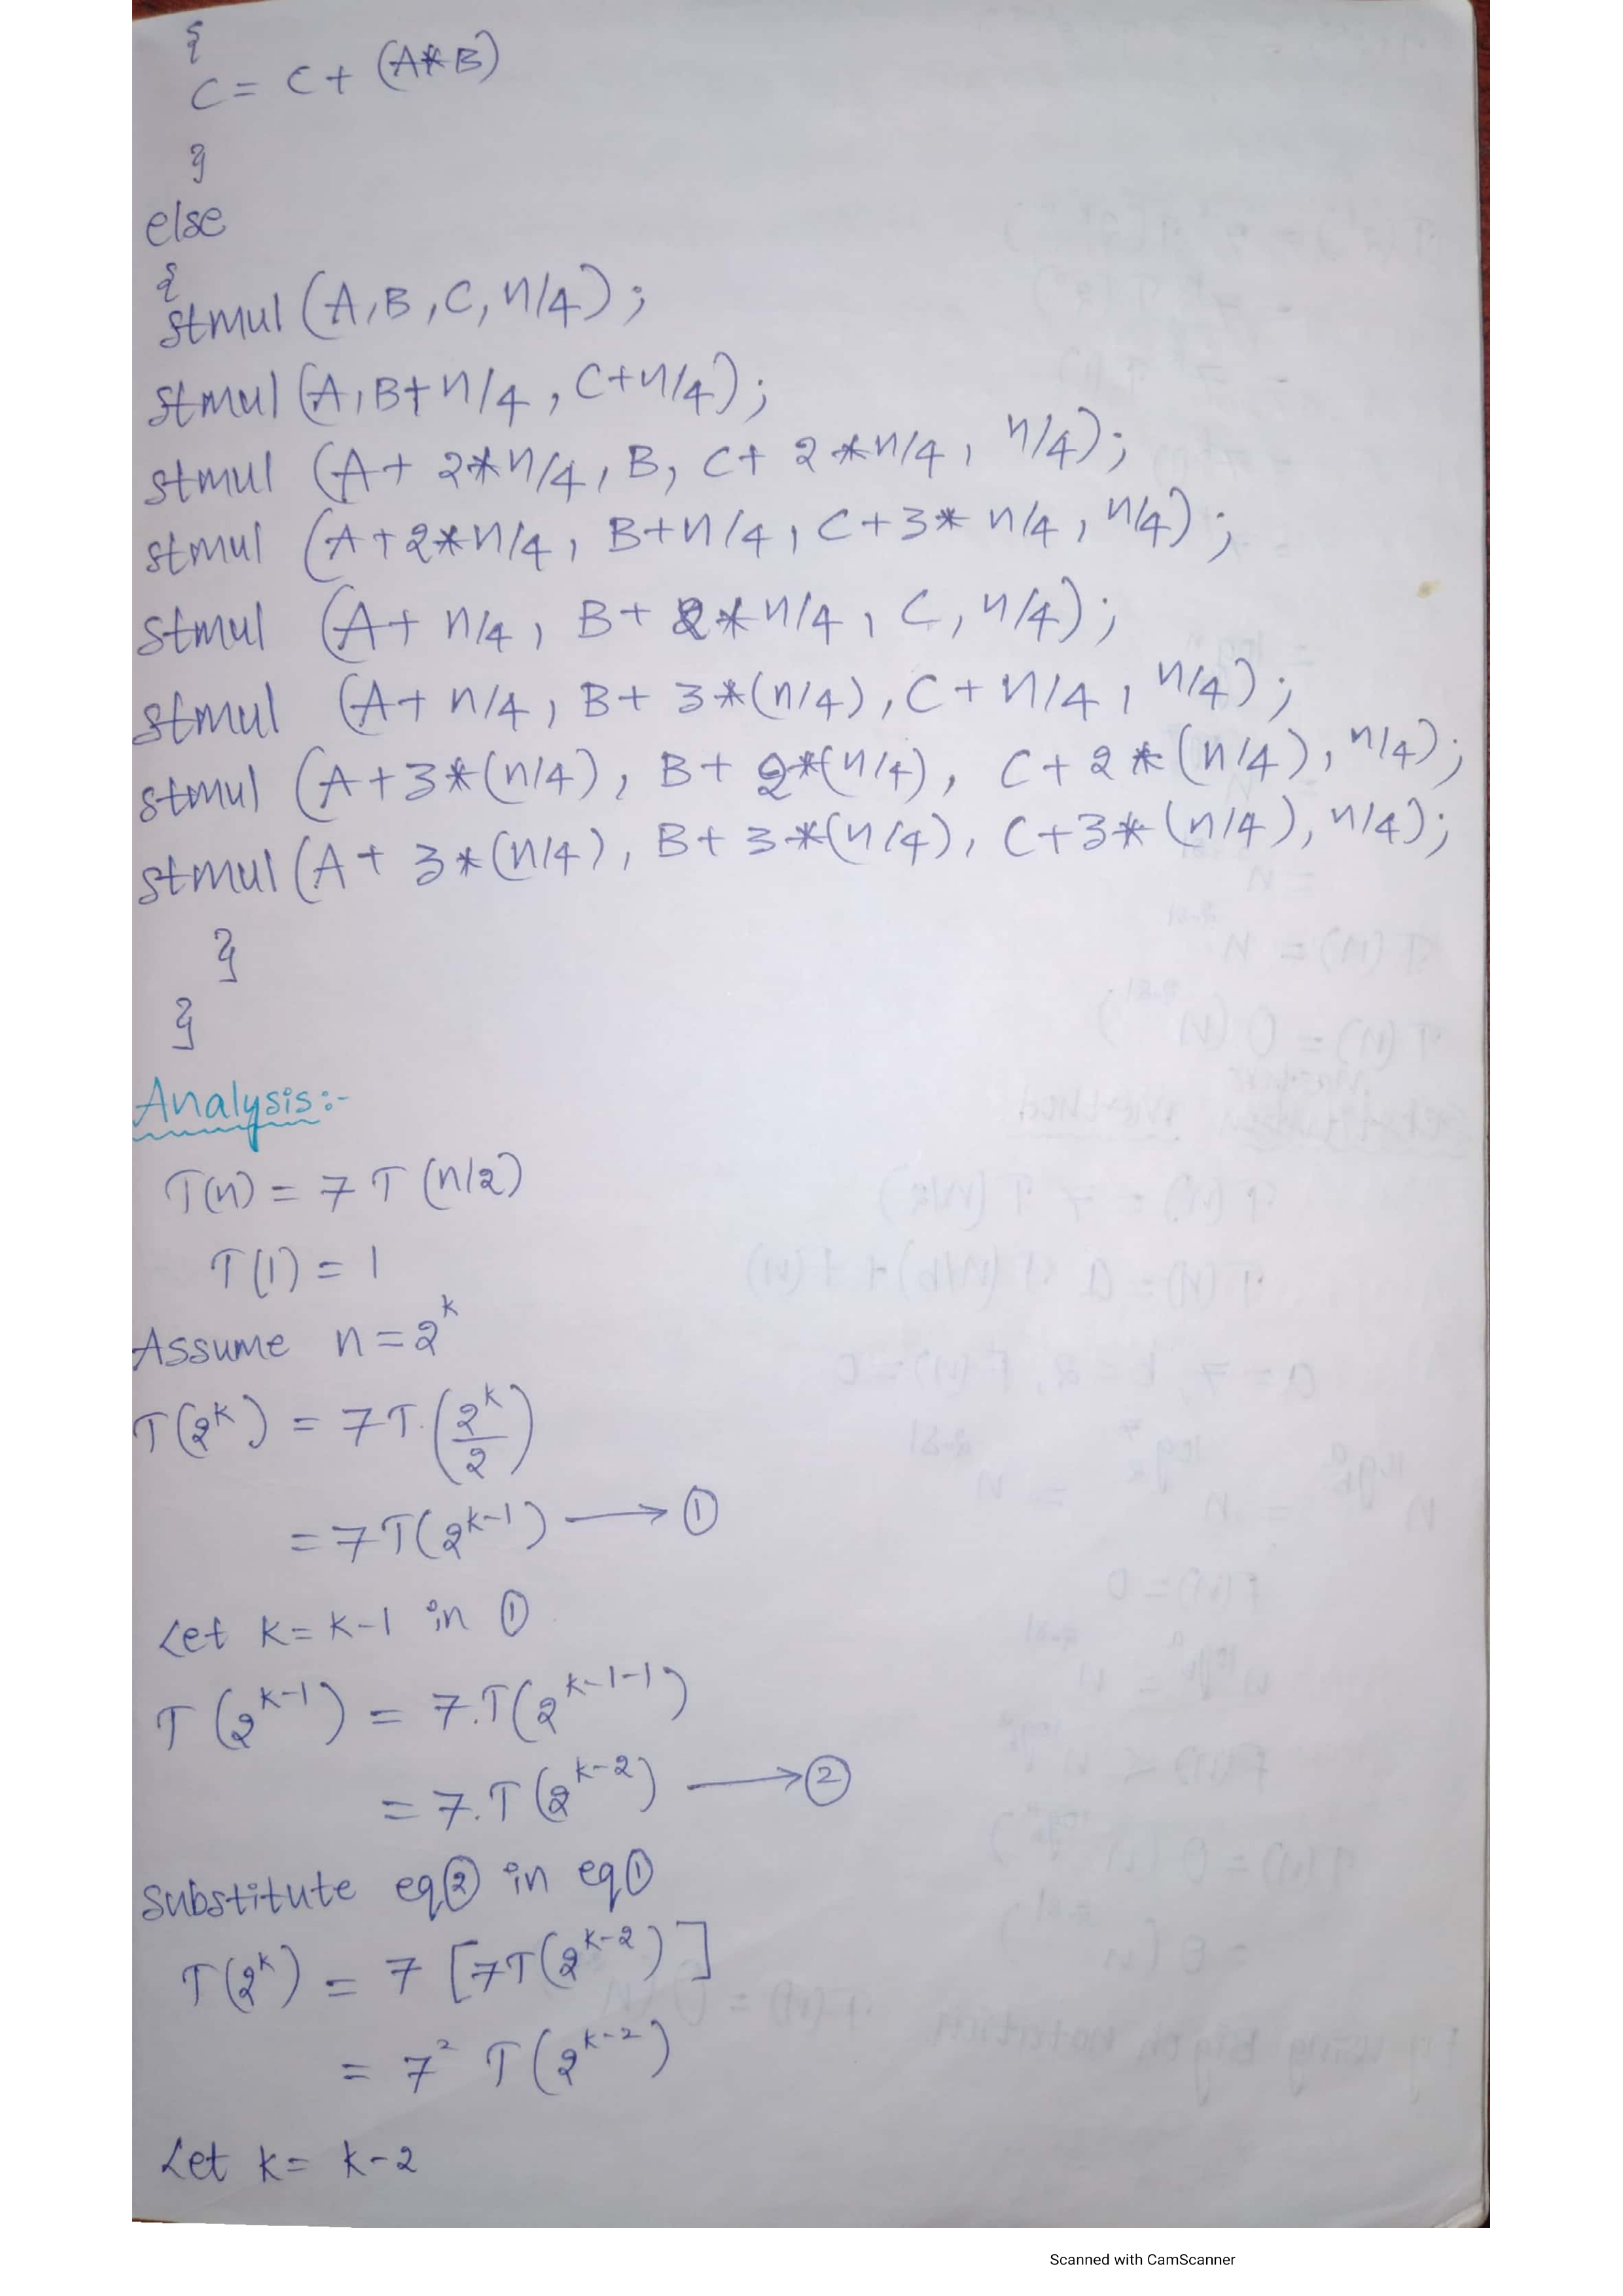 {
C = C + (A*B)
}
else
{
stmul (A,B,C,n/4);
stmul (A,B+n/4, C+n/4);
stmul (A+ 2*n/4, B, C+ 2*n/4, n/4);
stmul (A+2*n/4, B+n/4, C+3* n/4, n/4);
stmul (A+ n/4, B+ 2*n/4, C, n/4);
stmul (A+ n/4, B+ 3*(n/4), C+n/4, n/4);
stmul (A+3*(n/4), B+ 2*(n/4), C+2*(n/4), n/4);
stmul (A+ 3*(n/4), B+ 3*(n/4), C+3*(n/4), n/4);
}
}
Analysis:-
T(n) = 7 T (n/2)
T(1) = 1
Assume n = 2^k
T(2^k) = 7T.(2^k/2)
= 7T(2^k-1) ⟶ ①
Let k = k-1 in ①
T(2^k-1) = 7.T(2^k-1-1)
= 7.T(2^k-2) ⟶ ②
Substitute eq② in eq①
T(2^k) = 7 [7T(2^k-2)]
= 7² T(2^k-2)
Let k = k-2
Scanned with CamScanner